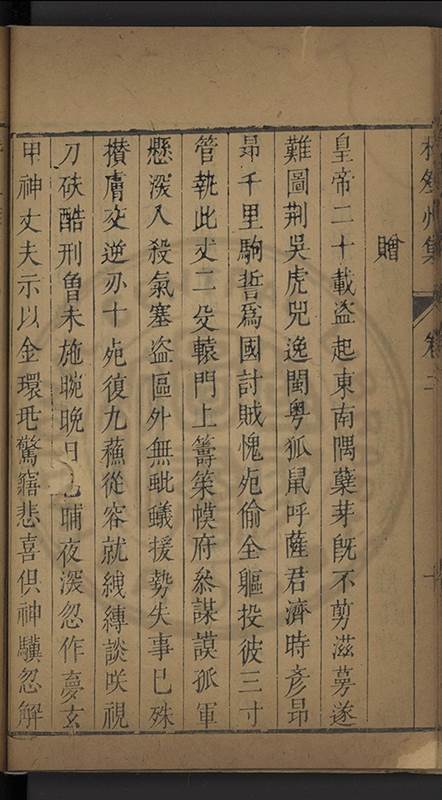 贈
皇帝二十載盗起東南隅蘖芽旣不剪滋蔓遂
難圖荆吳虎兕逸閩粤狐鼠呼薩君濟時彦昂
昂千里駒誓爲國討賊愧死偷全軀投彼三寸
管執此丈二殳轅門上籌策幙府叅謀謨孤軍
懸深入殺氣塞盗區外無毗蟻援勢失事已殊
攢膚交逆刃十死復九蘇從容就綫縛談咲視
刀砆酷刑魯未施晼晚日晡夜深忽作夢玄
甲神丈夫示以金環玭驚寤悲喜俱神驥忽解